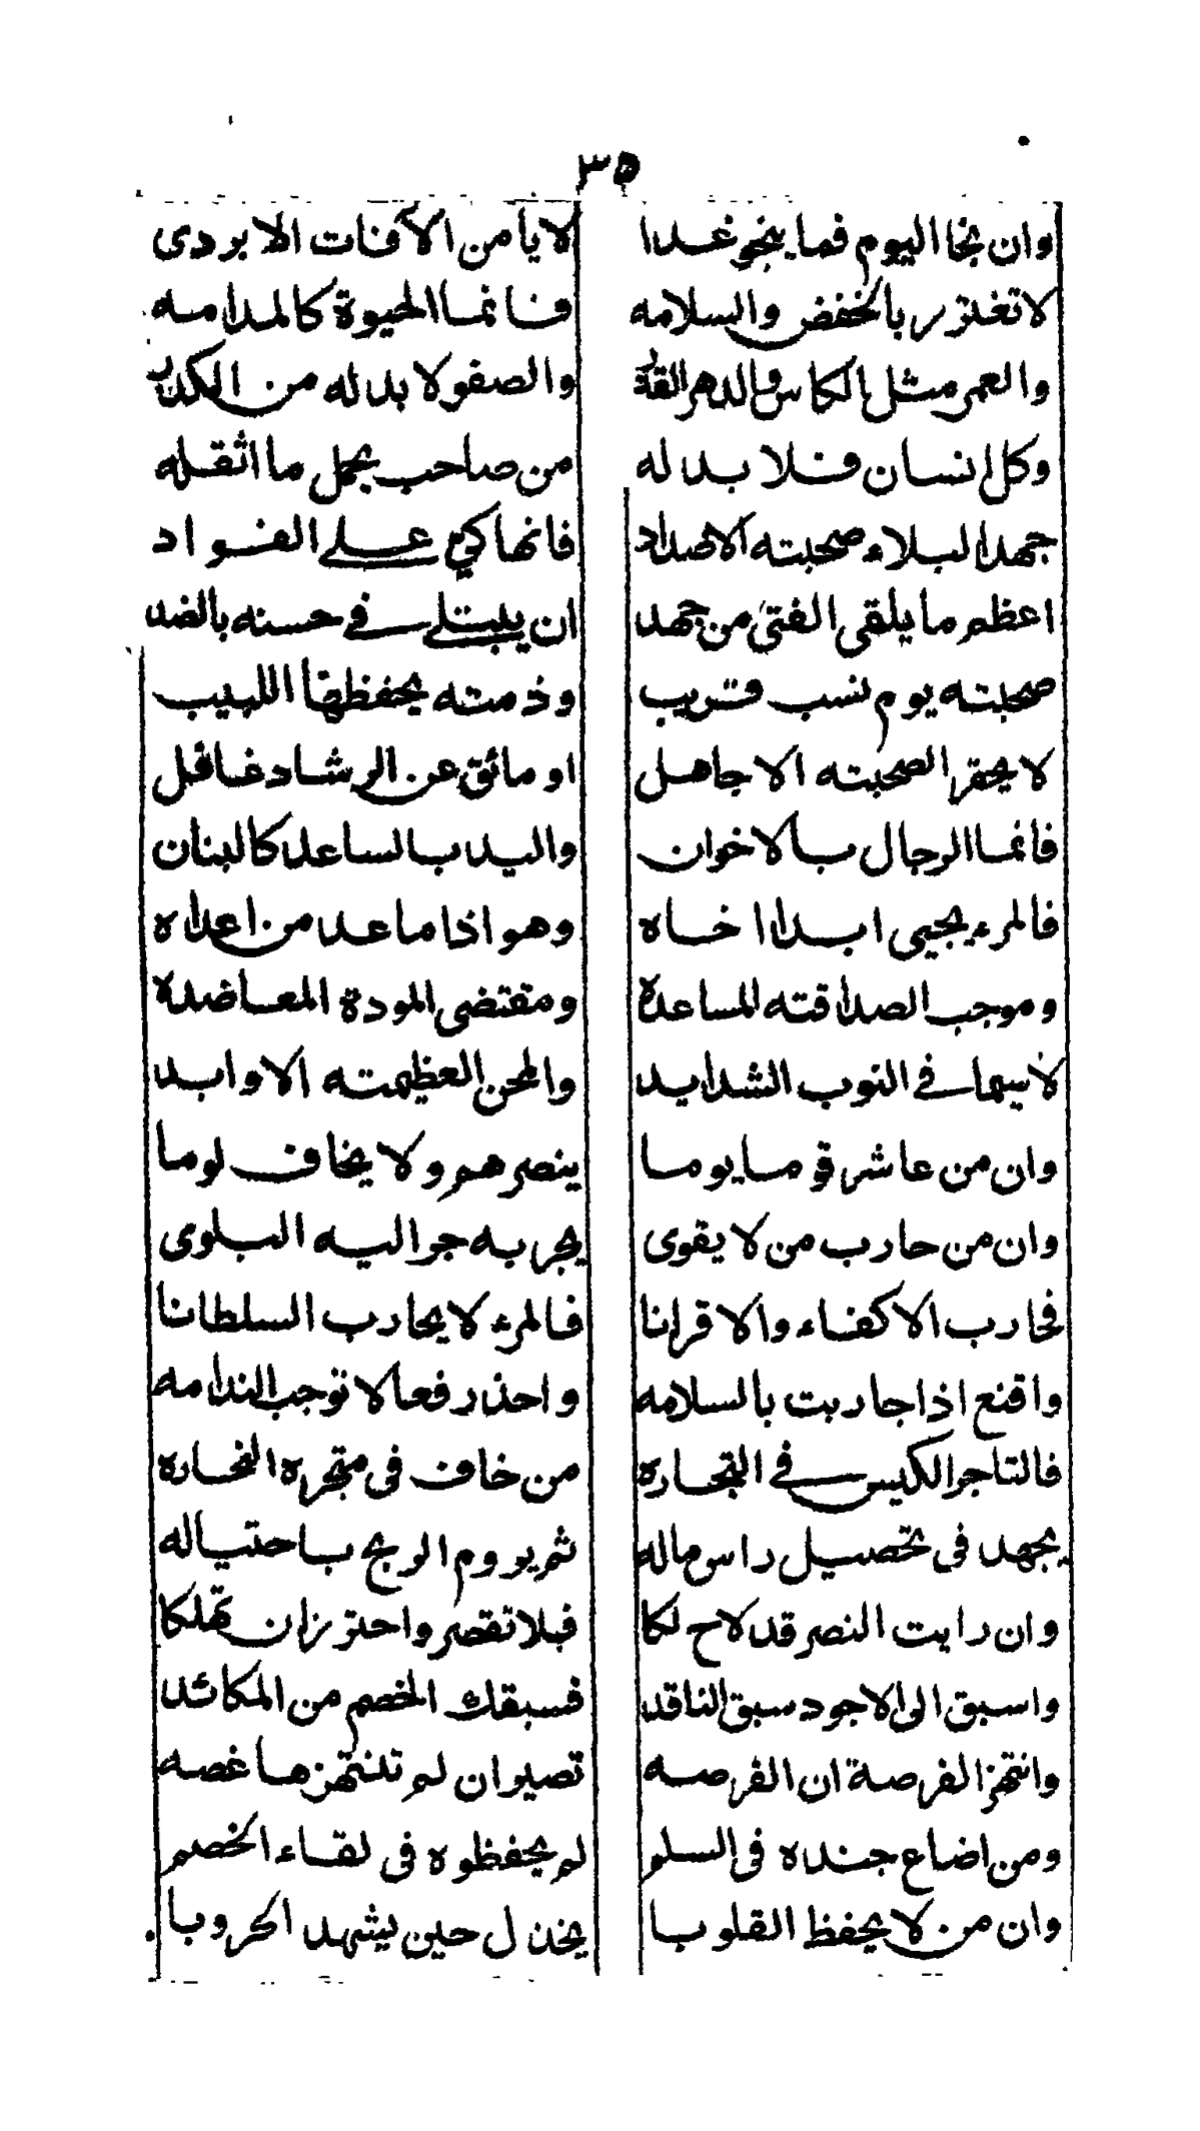 ٣٥
وان نجا اليوم فما ينجو غدا لا يامن الآفات الا بردى
لا تغترر بالخفض والسلامه فانما الحيوة كالمدامه
والعمر مثل الكاس والدهر القذر والصفو لا بد له من الكدر
وكل انسان فلا بد له من صاحب يحمل ما اثقله
جهد البلاء صحبته الاضداد فانها كي على الفواد
اعظم ما يلقى الفتى من جهد ان يبتلى في حسنه بالضد
صحبته يوم نسب قريب وذمته يحفظها اللبيب
لا يحقر الصحبته الا جاهل او مائق عن الرشاد غافل
فانما الرجال بالاخوان واليد بالساعد كالبنان
فالمرء يحيى ابدا اخاه وهو اذا ما عد من اعداه
وموجب الصداقته المساعدة ومقتضى المودة المعاضدة
لا سيما في النوب الشدايد والمحن العظيمته الاوابد
وان من عاشر قوما يوما ينصرهم ولا يخاف لوما
وان من حارب من لا يقوى يجر به جرا اليه البلوى
فحارب الاكفاء والاقرانا فالمرء لا يحارب السلطانا
واقنع اذا جاربت بالسلامه واحذر فعالا توجب الندامه
فالتاجر الكيس في التجاره من خاف في متجره الخساره
يجهد في تحصيل راس ماله ثم يروم الربح باحتياله
وان رايت النصر قد لاح لكا فلا تقصر واحترز ان تهلكا
واسبق الى الاجود سبق الناقد فسبقك الخصم من المكائد
وانتهز الفرصة ان الفرصه تصير ان لم تنتهزها غصه
ومن اضاع جنده في السلم لم يحفظوه في لقاء الخصم
وان من لا يحفظ القلوبا يخذل حين يشهد الحروبا